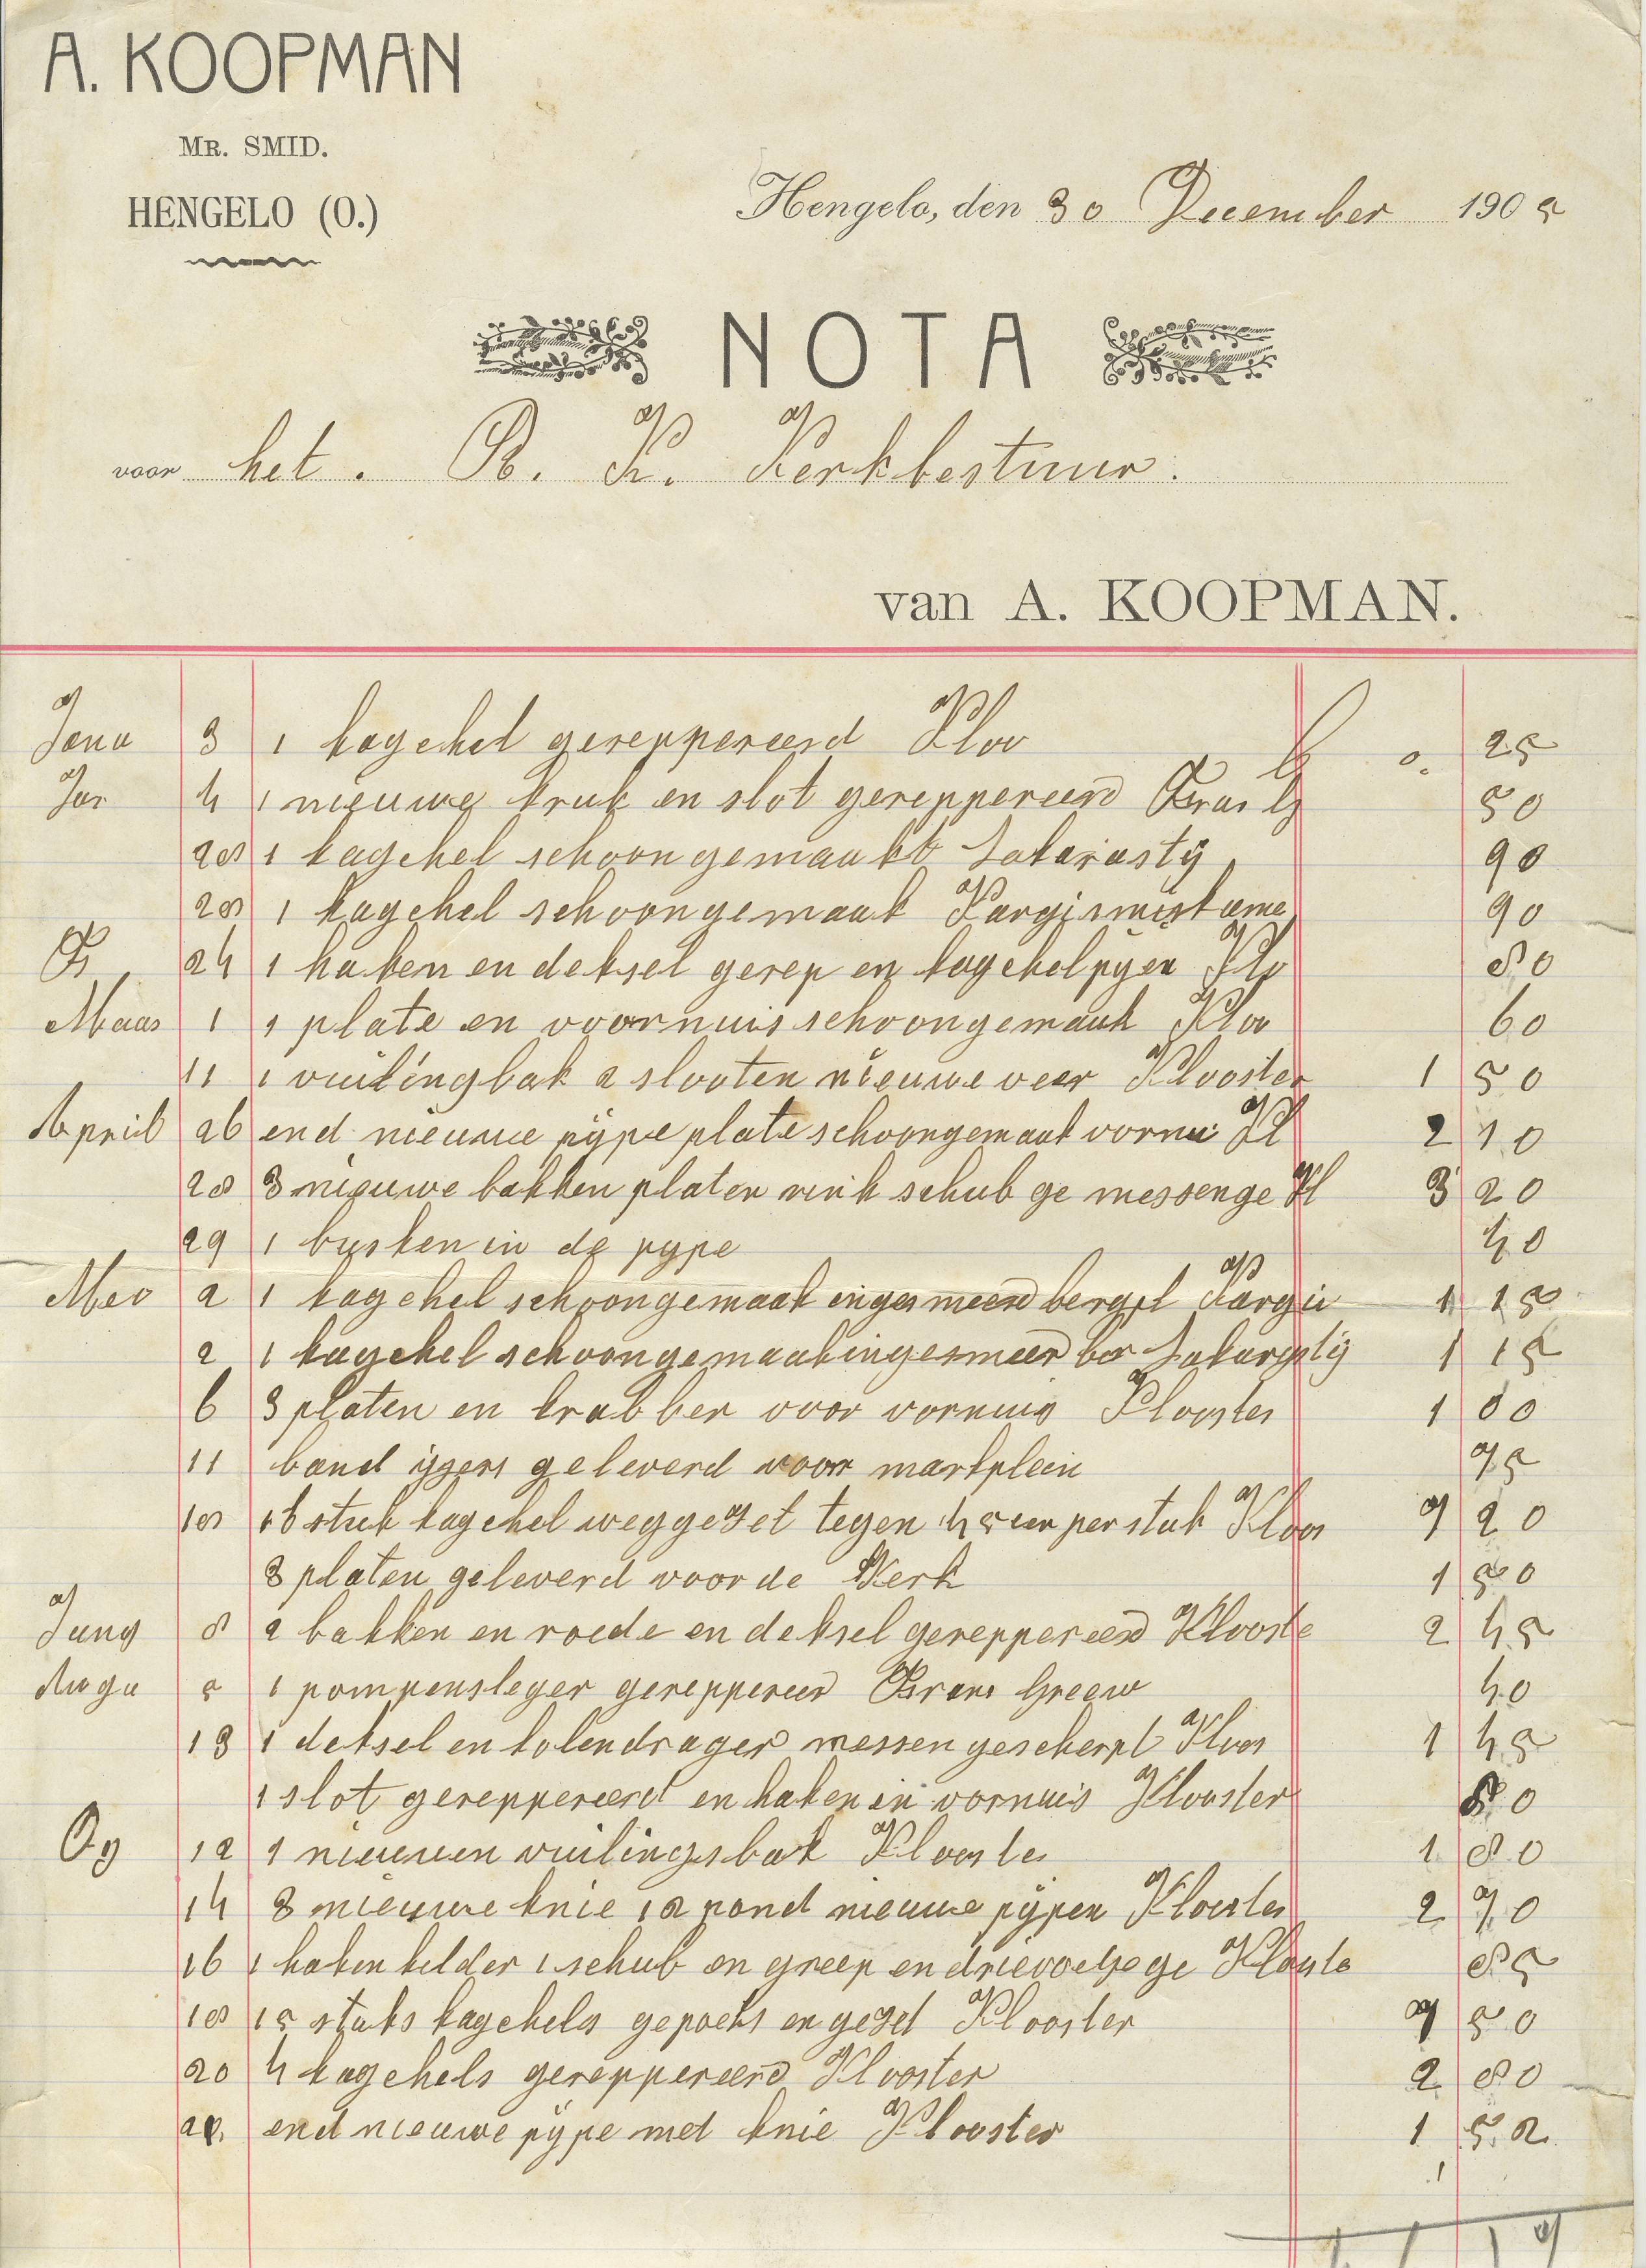 A. KOOPMAN
MR. SMID.
HENGELO (O.)
Hengelo, den 30 December 1905
NOTA
voor het. R. K. Kerkbestuur.
van A. KOOPMAN.
Janu 3 1 kagchel gereppereerd Kloo f 0. 25
Jan 4 1 nieuwe kruk en slot gereppereerd 50
28 1 kagchel schoongemaakt Sakrasty 90
28 1 kagchel schoongemaak 90
F 24 1 haken en deksel gerep en kagchelpyen Klo 80
Maas 1 1 plate en voornuis schoongemaak Kloo 60
11 1 vuilingbak 2 slooten nieuwe veer Klooster 1 50
April 26 end nieuwe pype plate schoongemaak vornu Kl 2 10
28 3 nieuwe bakken platen rink schub ge messenge Kl 3 20
29 1 busken in de pype 40
Mei 2 1 kagchel schoongemaak ingesmeerd 1 15
2 1 kagchel schoongemaak ingesmeer 1 15
6 3 platen en krabber voor vornuis Klooster 1 00
11 band yzers geleverd voor markplein 75
18 16 stuk kagchel weggezet tegen 45 cen per stuk Kloos 7 20
3 platen geleverd voor de Kerk 1 50
Juny 8 2 bakken en roede en deksel gereppereerd Klooste 2 45
Augu 5 1 pompensleger gereppereer 40
13 1 deksel en kolendrager messen gescherpt Kloos 1 45
1 slot gereppereerd en haken in vornuis Klooster 80
Og 12 1 nieuwen vuilingsbak Klooster 1 80
14 3 nieuwe knie 12 pond nieuwe pypen Klooster 2 70
16 1 haken kelder 1 schub en greep en Klooste 85
18 15 stuks kagchels gepoets en gezet Klooster 7 50
20 4 kagchels gereppereerd Klooster 2 80
end nieuwe pype met knie Klooster 1 52